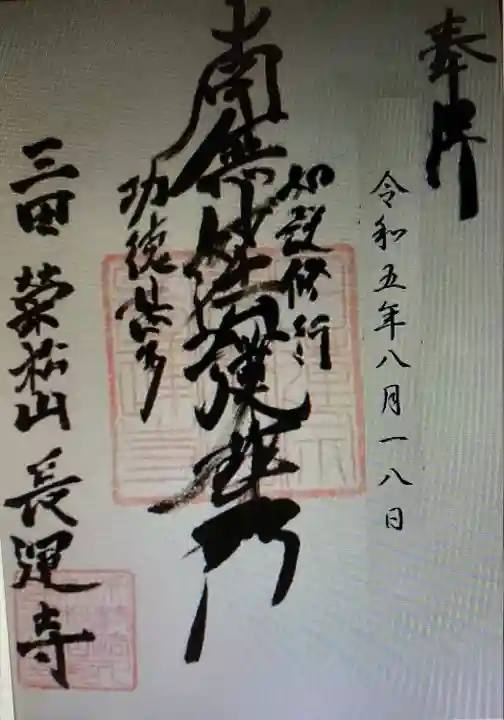 奉拝
令和五年八月一八日
如説修行
南無妙法蓮華経
功徳甚多
三田 榮松山 長運寺